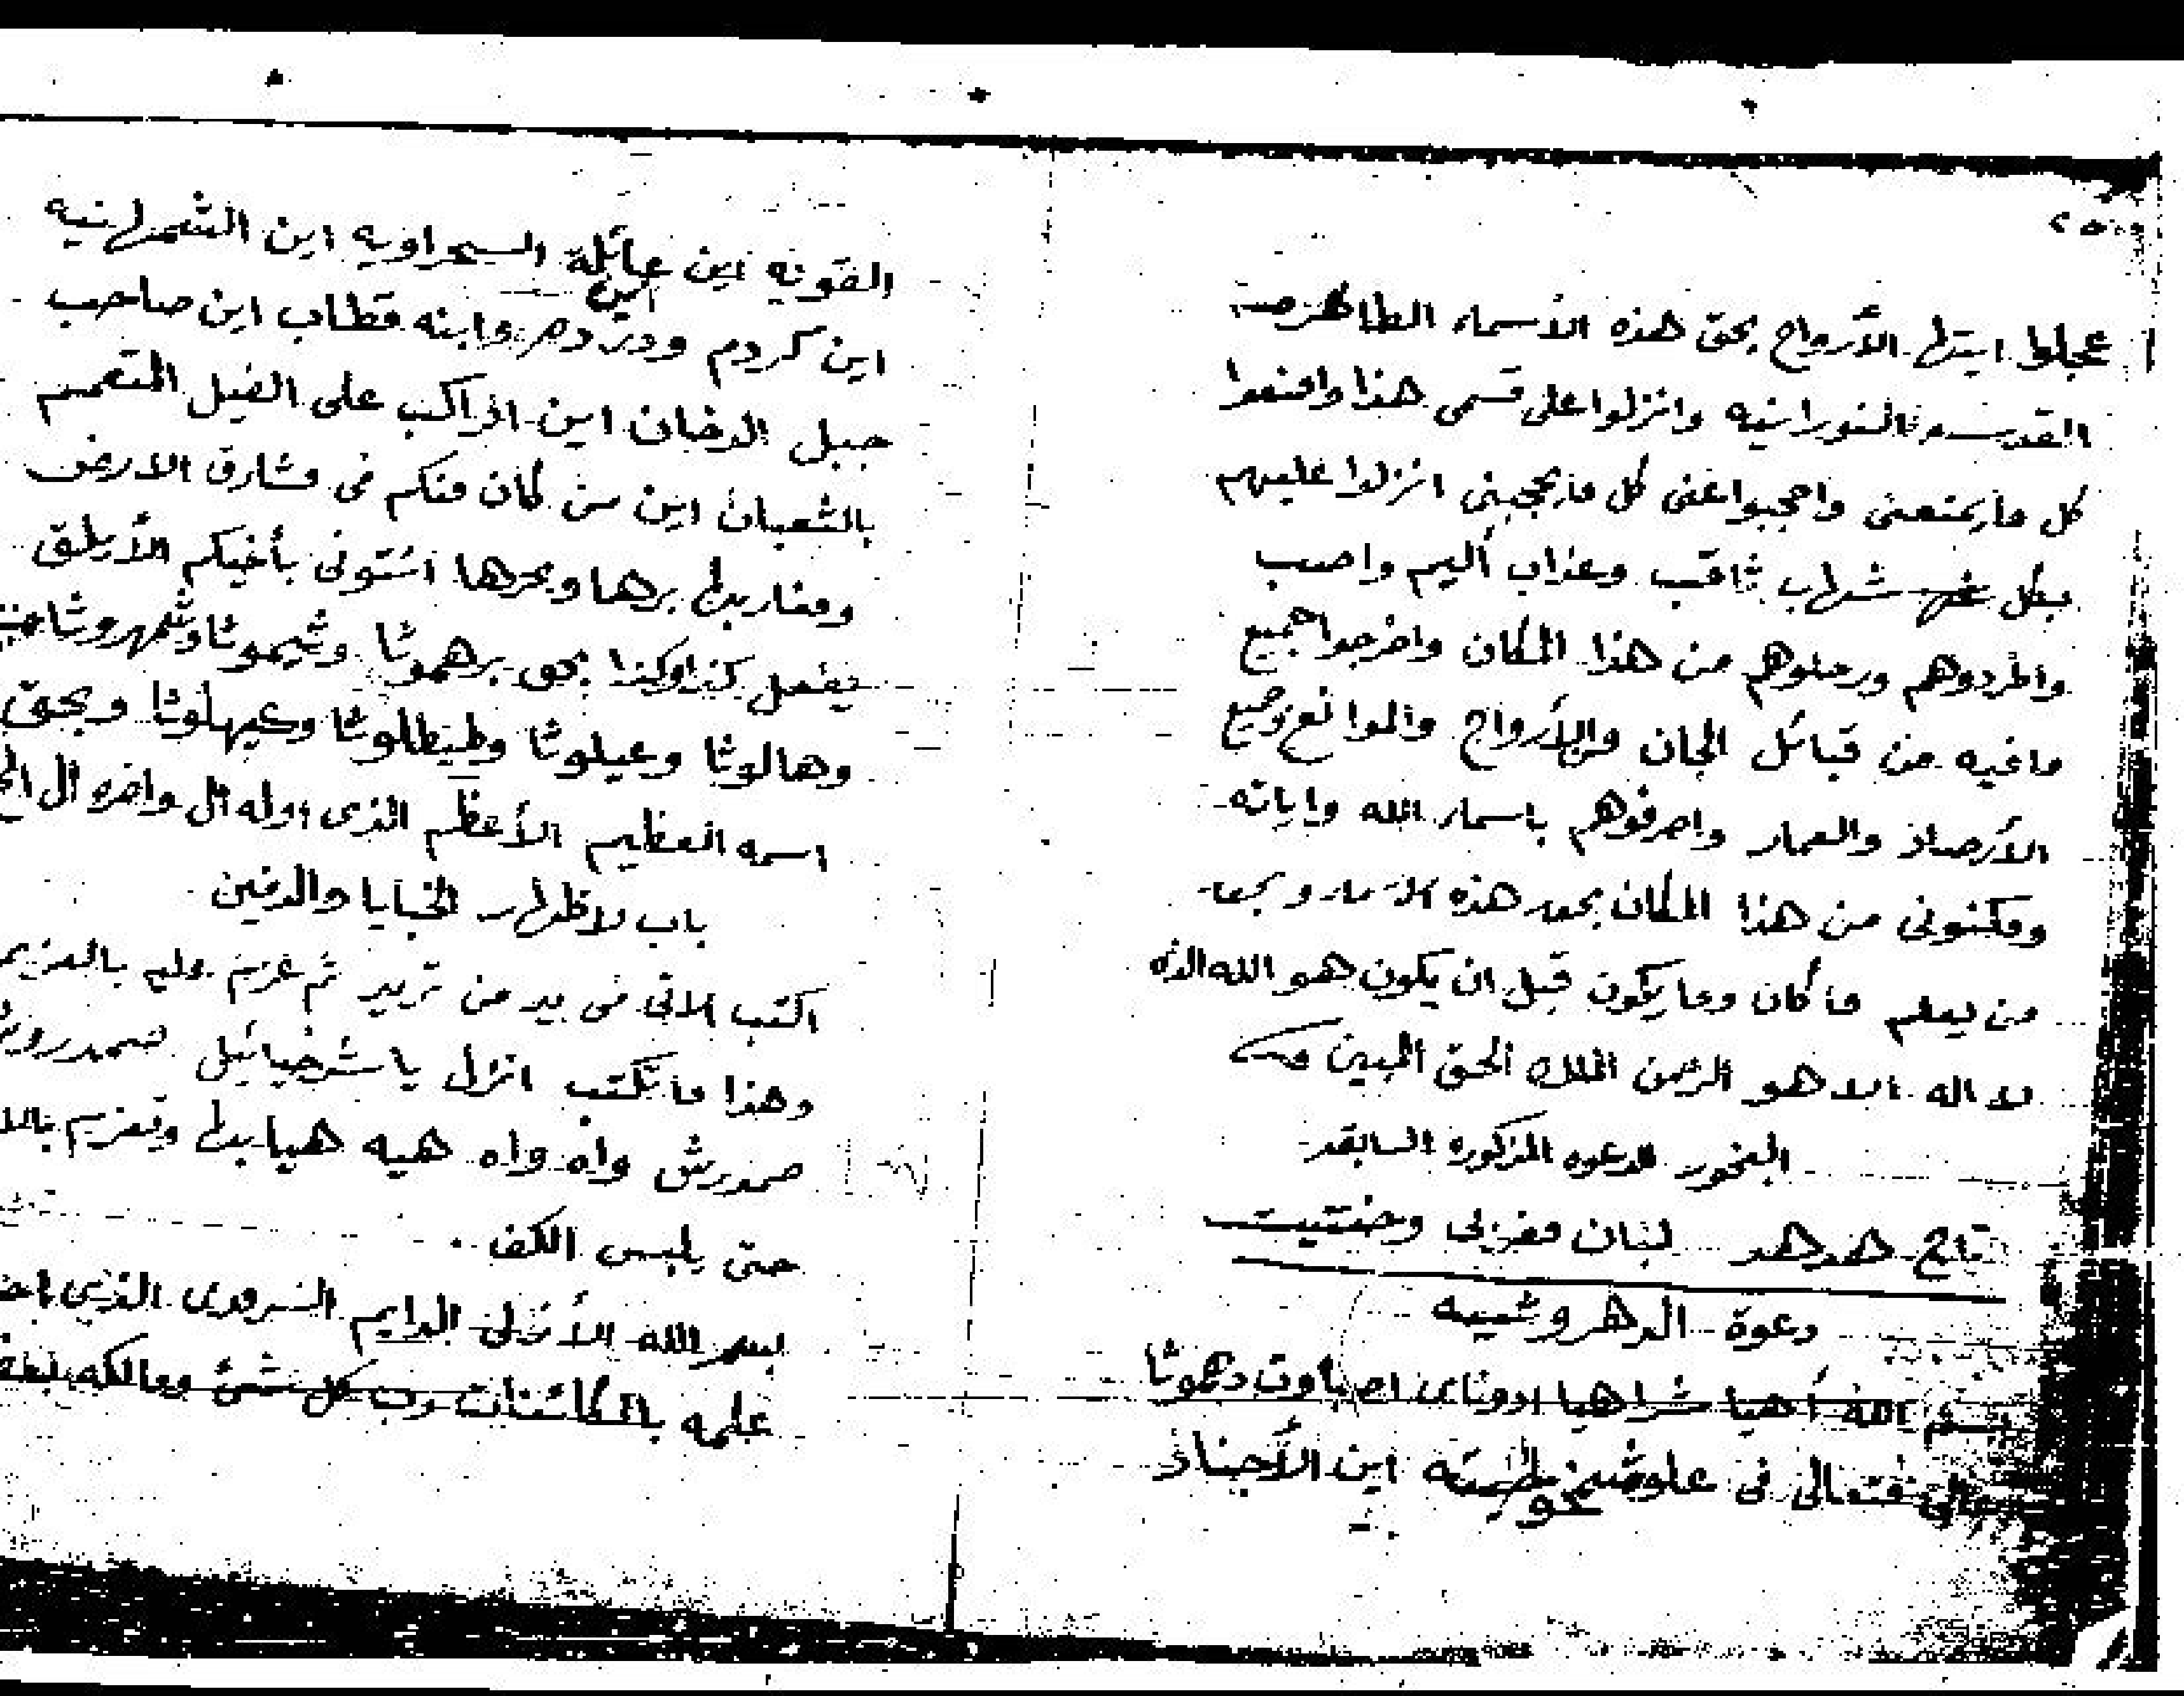 عجلوا ايتها الأرواح بحق هذه الأسماء الطاهره
القدسيه النورانيه وانزلوا على قسمى هذا وامنعوا
كل ما يمنعنى واحجبوا عنى كل ما يحجبنى انزلوا عليهم
بكل شهاب ثاقب وعذاب أليم واصب
واطردوهم ورحلوهم من هذا المكان واخرجوا جميع
مافيه من قبائل الجان والأرواح والموانع وجميع
الأرصاد والعمار واصرفوهم باسماء الله واياته
ومكنونى من هذا المكان بحق هذه الاسماء وبحق
من يعلم ما كان وما يكون قبل ان يكون هو الله الذى
لا اله الا هو الرحمن الملك الحق المبين
البخور للدعوه المذكوره السابقه
تاج هدهد لبنان مغربى وحنتيت
دعوة الدهروشيه
بسم الله أهيا شراهيا ادوناى اصباوت دهموثا
تعالى فتعالى فى علو اين الأجناد
القويه اين عائلة السحراويه اين الشمهانيه
اين كردم ودردم وابنه قطاب اين صاحب
جبل الدخان اين الراكب على الفيل المتعمم
بالثعبان اين من كان منكم فى مشارق الارض
ومغاربها برها وبحرها ائتونى بأخيكم الأبلق
يفعل كذا وكذا بحق برهموثا وشيموثا
وهالوثا وعيلوثا وطيطلوثا وكيهلوثا وبحق
اسمه العظيم الأعظم الذى اوله ال واخره ال
باب لاظهار الخبايا والدفين
اكتب الاتى فى يد من تريد ثم عزم عليه
وهذا ما تكتب انزل يا شرخيائيل
صمدرش واه واه هيه هيا بها وتعزم
حتى يلبس الكف .
بسم الله الأزلى الدايم السرمدى الذى
علمه بالكائنات رب كل شئ ومالكه